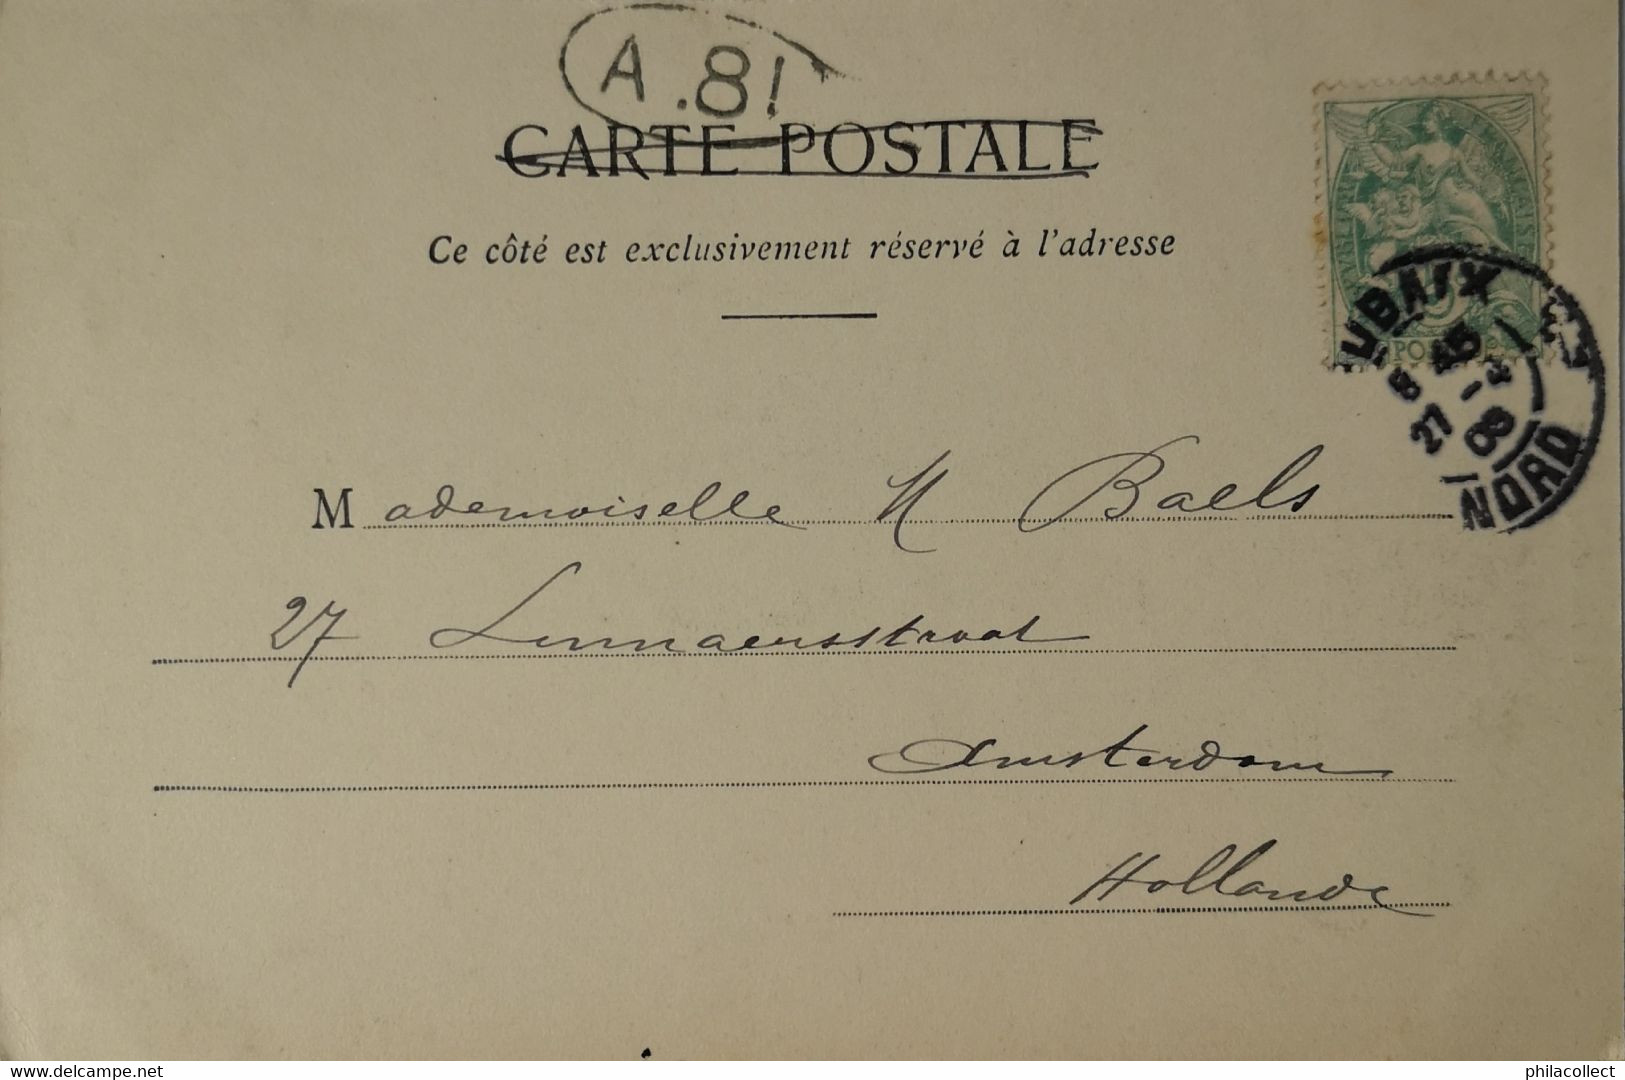 A.81
CARTE POSTALE
Ce côté est exclusivement réservé à l'adresse
UBAIX
8 45
27 - 3
06
NORD
Mademoiselle N Baels
27 Linnaeusstraat
Amsterdam
Hollande
delcampe.net
philacollect